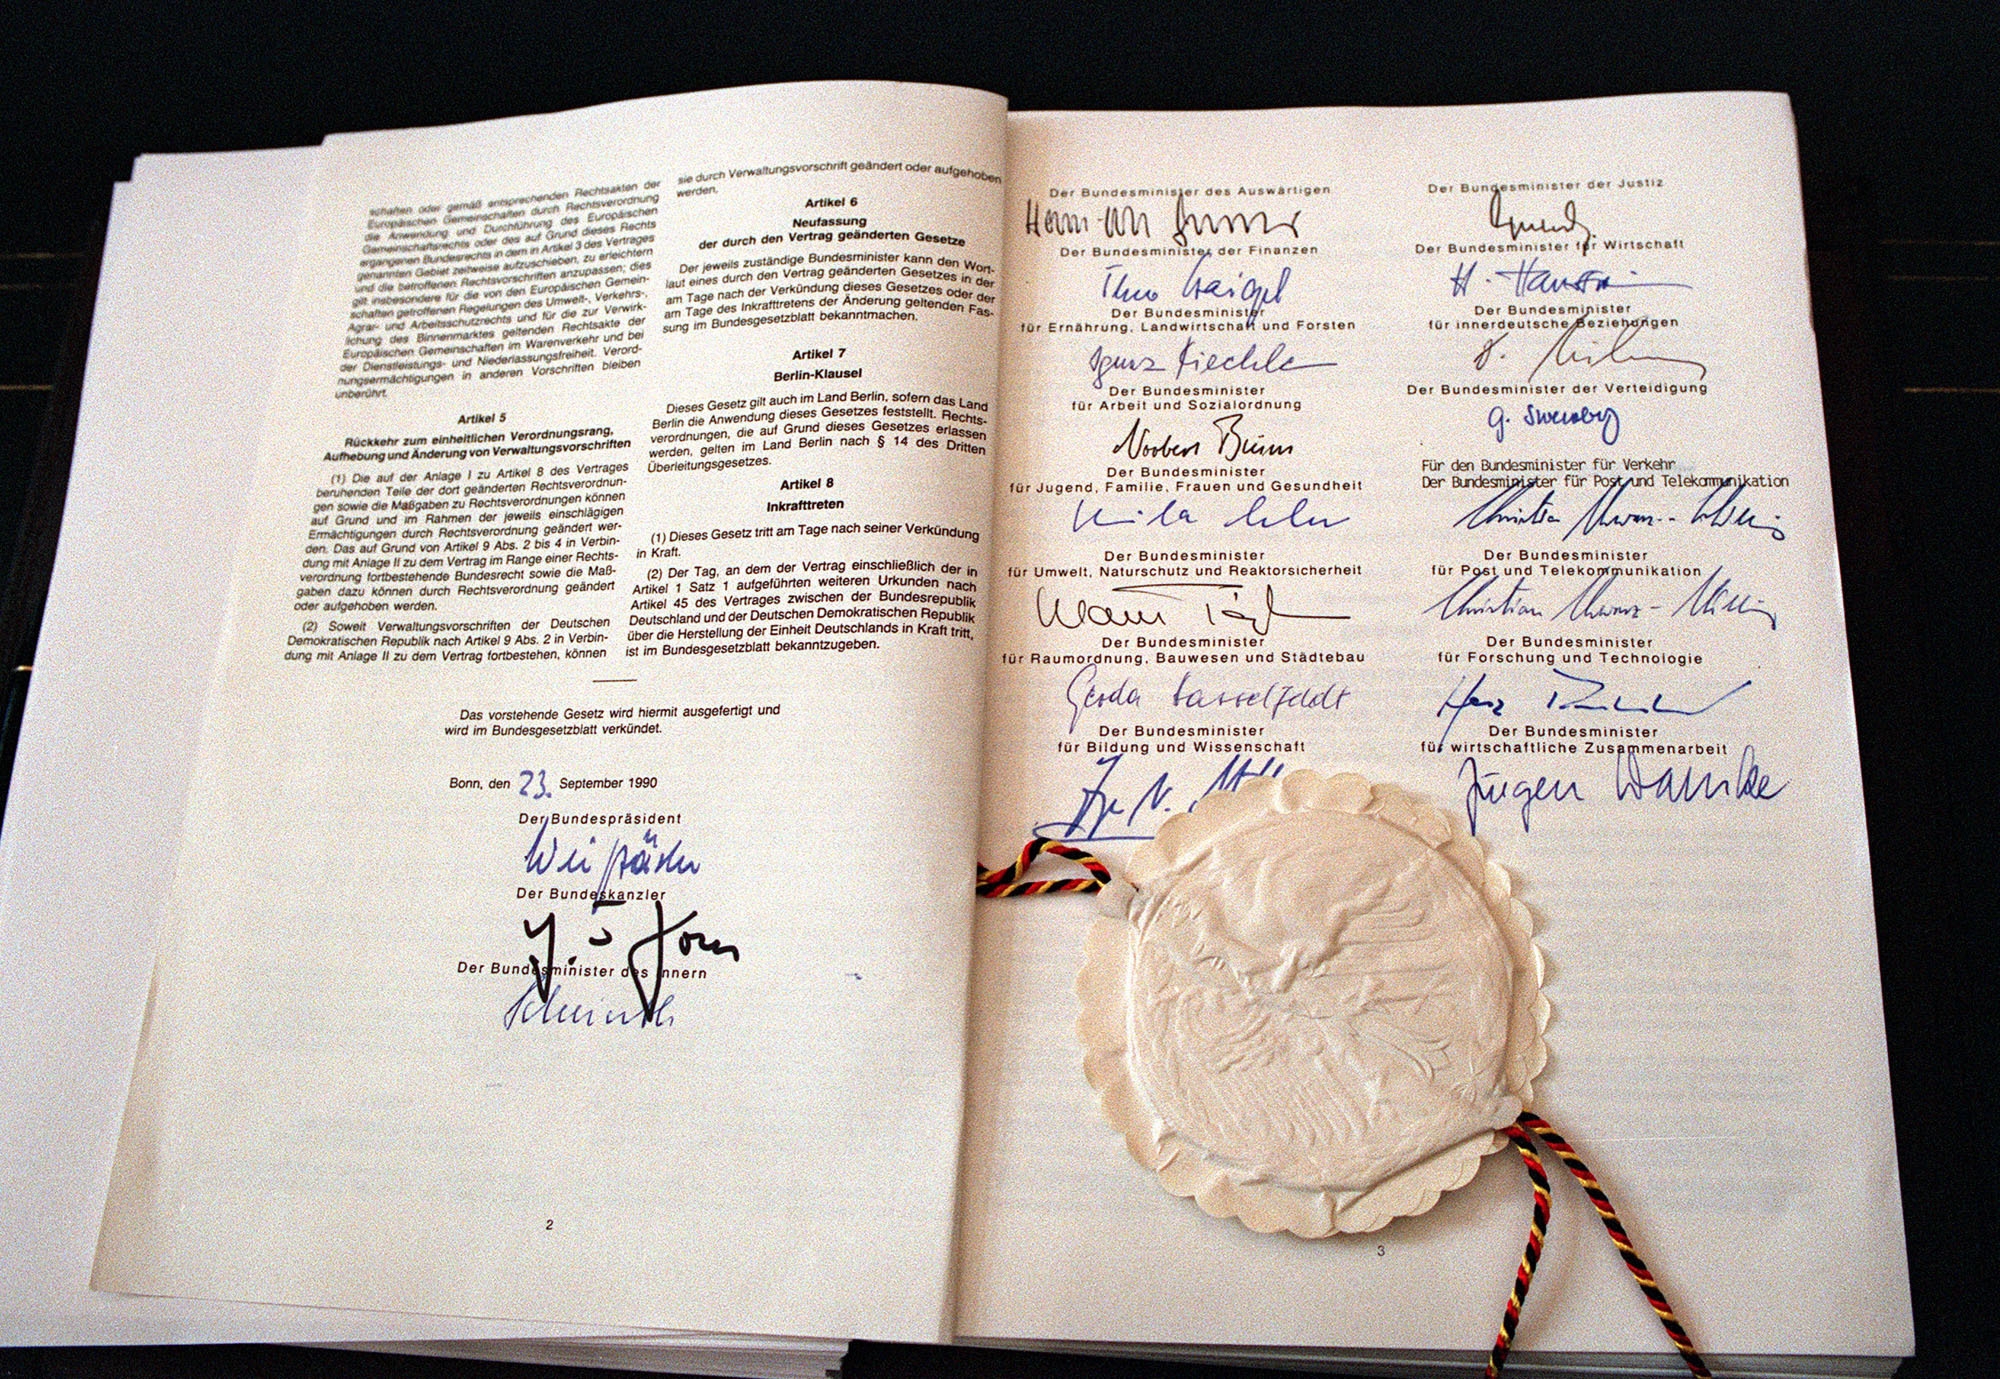 schaften oder gemäß entsprechenden Rechtsakten der
Europäischen Gemeinschaften durch Rechtsverordnung
die Anwendung und Durchführung des Europäischen
Gemeinschaftsrechts oder des auf Grund dieses Rechts
ergangenen Bundesrechts in dem in Artikel 3 des Vertrages
genannten Gebiet zeitweise aufzuschieben, zu erleichtern
und die betroffenen Rechtsvorschriften anzupassen; dies
gilt insbesondere für die von den Europäischen Gemein-
schaften getroffenen Regelungen des Umwelt-, Verkehrs-,
Agrar- und Arbeitsschutzrechts und für die zur Verwirk-
lichung des Binnenmarktes geltenden Rechtsakte der
Europäischen Gemeinschaften im Warenverkehr und bei
der Dienstleistungs- und Niederlassungsfreiheit. Verord-
nungsermächtigungen in anderen Vorschriften bleiben
unberührt.
Artikel 5
Rückkehr zum einheitlichen Verordnungsrang,
Aufhebung und Änderung von Verwaltungsvorschriften
(1) Die auf der Anlage I zu Artikel 8 des Vertrages
beruhenden Teile der dort geänderten Rechtsverordnun-
gen sowie die Maßgaben zu Rechtsverordnungen können
auf Grund und im Rahmen der jeweils einschlägigen
Ermächtigungen durch Rechtsverordnung geändert wer-
den. Das auf Grund von Artikel 9 Abs. 2 bis 4 in Verbin-
dung mit Anlage II zu dem Vertrag im Range einer Rechts-
verordnung fortbestehende Bundesrecht sowie die Maß-
gaben dazu können durch Rechtsverordnung geändert
oder aufgehoben werden.
(2) Soweit Verwaltungsvorschriften der Deutschen
Demokratischen Republik nach Artikel 9 Abs. 2 in Verbin-
dung mit Anlage II zu dem Vertrag fortbestehen, können
sie durch Verwaltungsvorschrift geändert oder aufgehoben
werden.
Artikel 6
Neufassung
der durch den Vertrag geänderten Gesetze
Der jeweils zuständige Bundesminister kann den Wort-
laut eines durch den Vertrag geänderten Gesetzes in der
am Tage nach der Verkündung dieses Gesetzes oder der
am Tage des Inkrafttretens der Änderung geltenden Fas-
sung im Bundesgesetzblatt bekanntmachen.
Artikel 7
Berlin-Klausel
Dieses Gesetz gilt auch im Land Berlin, sofern das Land
Berlin die Anwendung dieses Gesetzes feststellt. Rechts-
verordnungen, die auf Grund dieses Gesetzes erlassen
werden, gelten im Land Berlin nach § 14 des Dritten
Überleitungsgesetzes.
Artikel 8
Inkrafttreten
(1) Dieses Gesetz tritt am Tage nach seiner Verkündung
in Kraft.
(2) Der Tag, an dem der Vertrag einschließlich der in
Artikel 1 Satz 1 aufgeführten weiteren Urkunden nach
Artikel 45 des Vertrages zwischen der Bundesrepublik
Deutschland und der Deutschen Demokratischen Republik
über die Herstellung der Einheit Deutschlands in Kraft tritt,
ist im Bundesgesetzblatt bekanntzugeben.
Das vorstehende Gesetz wird hiermit ausgefertigt und
wird im Bundesgesetzblatt verkündet.
Bonn, den 23. September 1990
Der Bundespräsident
Weizsäcker
Der Bundeskanzler
Der Bundesminister des Innern
2
Der Bundesminister des Auswärtigen
Der Bundesminister der Finanzen
Theo Waigel
Der Bundesminister
für Ernährung, Landwirtschaft und Forsten
Ignaz Kiechle
Der Bundesminister
für Arbeit und Sozialordnung
Norbert Blüm
Der Bundesminister
für Jugend, Familie, Frauen und Gesundheit
Der Bundesminister
für Umwelt, Naturschutz und Reaktorsicherheit
Der Bundesminister
für Raumordnung, Bauwesen und Städtebau
Gerda Hasselfeldt
Der Bundesminister
für Bildung und Wissenschaft
Der Bundesminister der Justiz
Der Bundesminister für Wirtschaft
Der Bundesminister
für innerdeutsche Beziehungen
Der Bundesminister der Verteidigung
Für den Bundesminister für Verkehr
Der Bundesminister für Post und Telekommunikation
Christian Schwarz-Schilling
Der Bundesminister
für Post und Telekommunikation
Christian Schwarz-Schilling
Der Bundesminister
für Forschung und Technologie
Der Bundesminister
für wirtschaftliche Zusammenarbeit
Jürgen Warnke
3